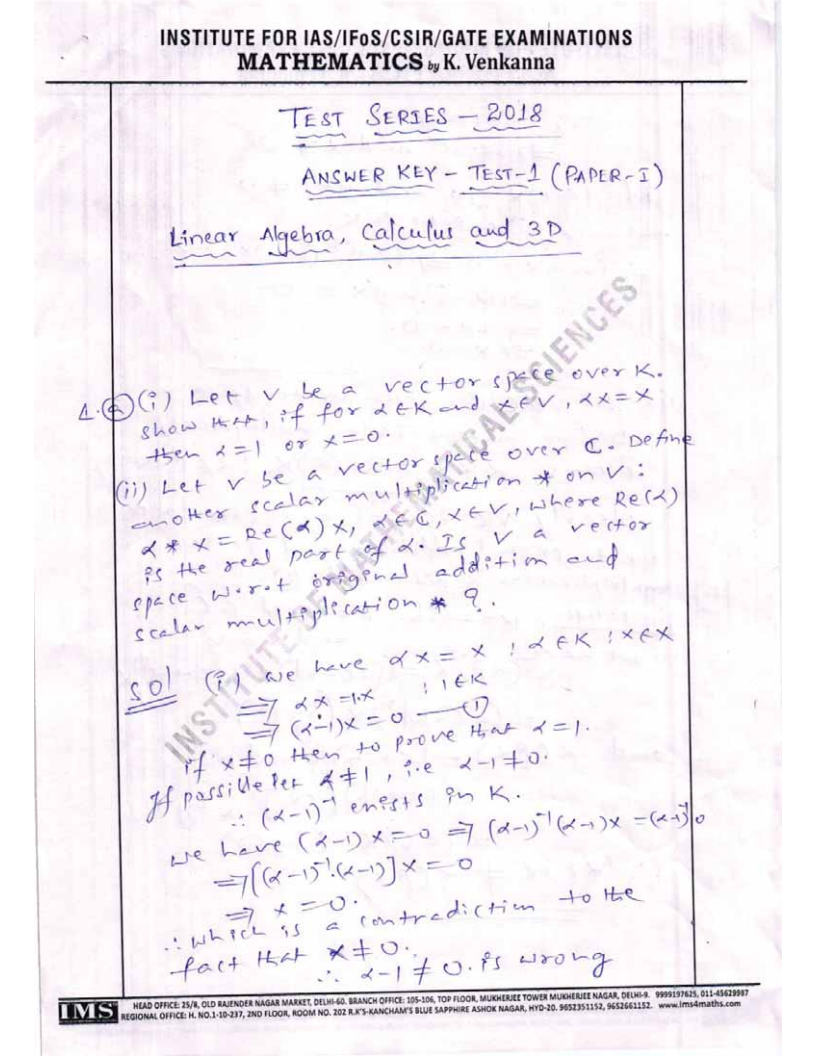 INSTITUTE FOR IAS/IFoS/CSIR/GATE EXAMINATIONS
MATHEMATICS by K. Venkanna
TEST SERIES – 2018
ANSWER KEY – TEST-1 (PAPER-I)
Linear Algebra, Calculus and 3D
INSTITUTE OF MATHEMATICAL SCIENCES
1. (a) (i) Let V be a vector space over K.
show that, if for α∈K and x∈V, αx=x
then α=1 or x=0.
(ii) Let V be a vector space over ℂ. Define
another scalar multiplication * on V :
α * x = Re(α) x, α∈ℂ, x∈V, where Re(α)
is the real part of α. Is V a vector
space w.r.t original addition and
scalar multiplication * ?.
Sol (i) we have αx = x ; α∈K ; x∈X
⇒ αx = 1.x ; 1∈K
⇒ (α-1)x = 0 — ①
if x≠0 then to prove that α=1.
If possible let α≠1, i.e α-1≠0.
∴ (α-1)⁻¹ exists in K.
we have (α-1)x=0 ⇒ (α-1)⁻¹(α-1)x = (α-1)⁻¹0
⇒ [(α-1)⁻¹.(α-1)]x = 0
⇒ x = 0.
∴ which is a contradiction to the
fact that x≠0.
∴ α-1≠0. is wrong
IMS
HEAD OFFICE: 25/8, OLD RAJENDER NAGAR MARKET, DELHI-60. BRANCH OFFICE: 105-106, TOP FLOOR, MUKHERJEE TOWER MUKHERJEE NAGAR, DELHI-9. 9999197625, 011-45629987
REGIONAL OFFICE: H. NO.1-10-237, 2ND FLOOR, ROOM NO. 202 R.K'S-KANCHAM'S BLUE SAPPHIRE ASHOK NAGAR, HYD-20. 9652351152, 9652661152. www.ims4maths.com